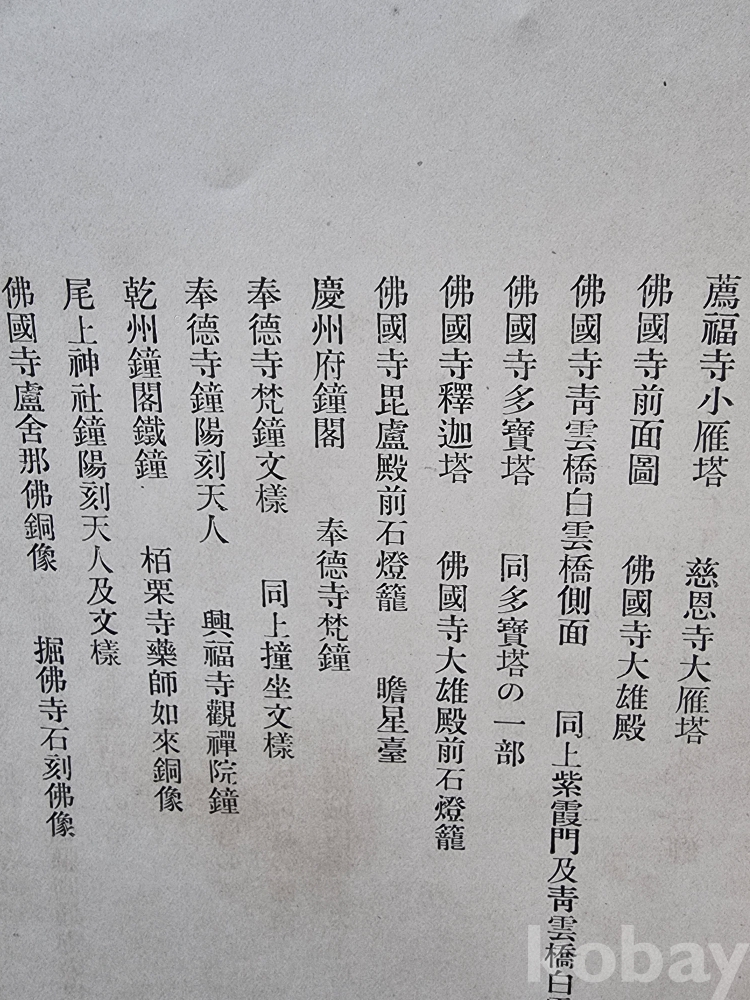 薦福寺小雁塔　慈恩寺大雁塔
佛國寺前面圖　佛國寺大雄殿
佛國寺靑雲橋白雲橋側面　同上紫霞門及靑雲橋白
佛國寺多寶塔　同多寶塔の一部
佛國寺釋迦塔　佛國寺大雄殿前石燈籠
佛國寺毘盧殿前石燈籠　瞻星臺
慶州府鐘閣　奉德寺梵鐘
奉德寺梵鐘文樣　同上撞坐文樣
奉德寺鐘陽刻天人　興福寺觀禪院鐘
乾州鐘閣鐵鐘　栢栗寺藥師如來銅像
尾上神社鐘陽刻天人及文樣
佛國寺盧舍那佛銅像　掘佛寺石刻佛像
kobay